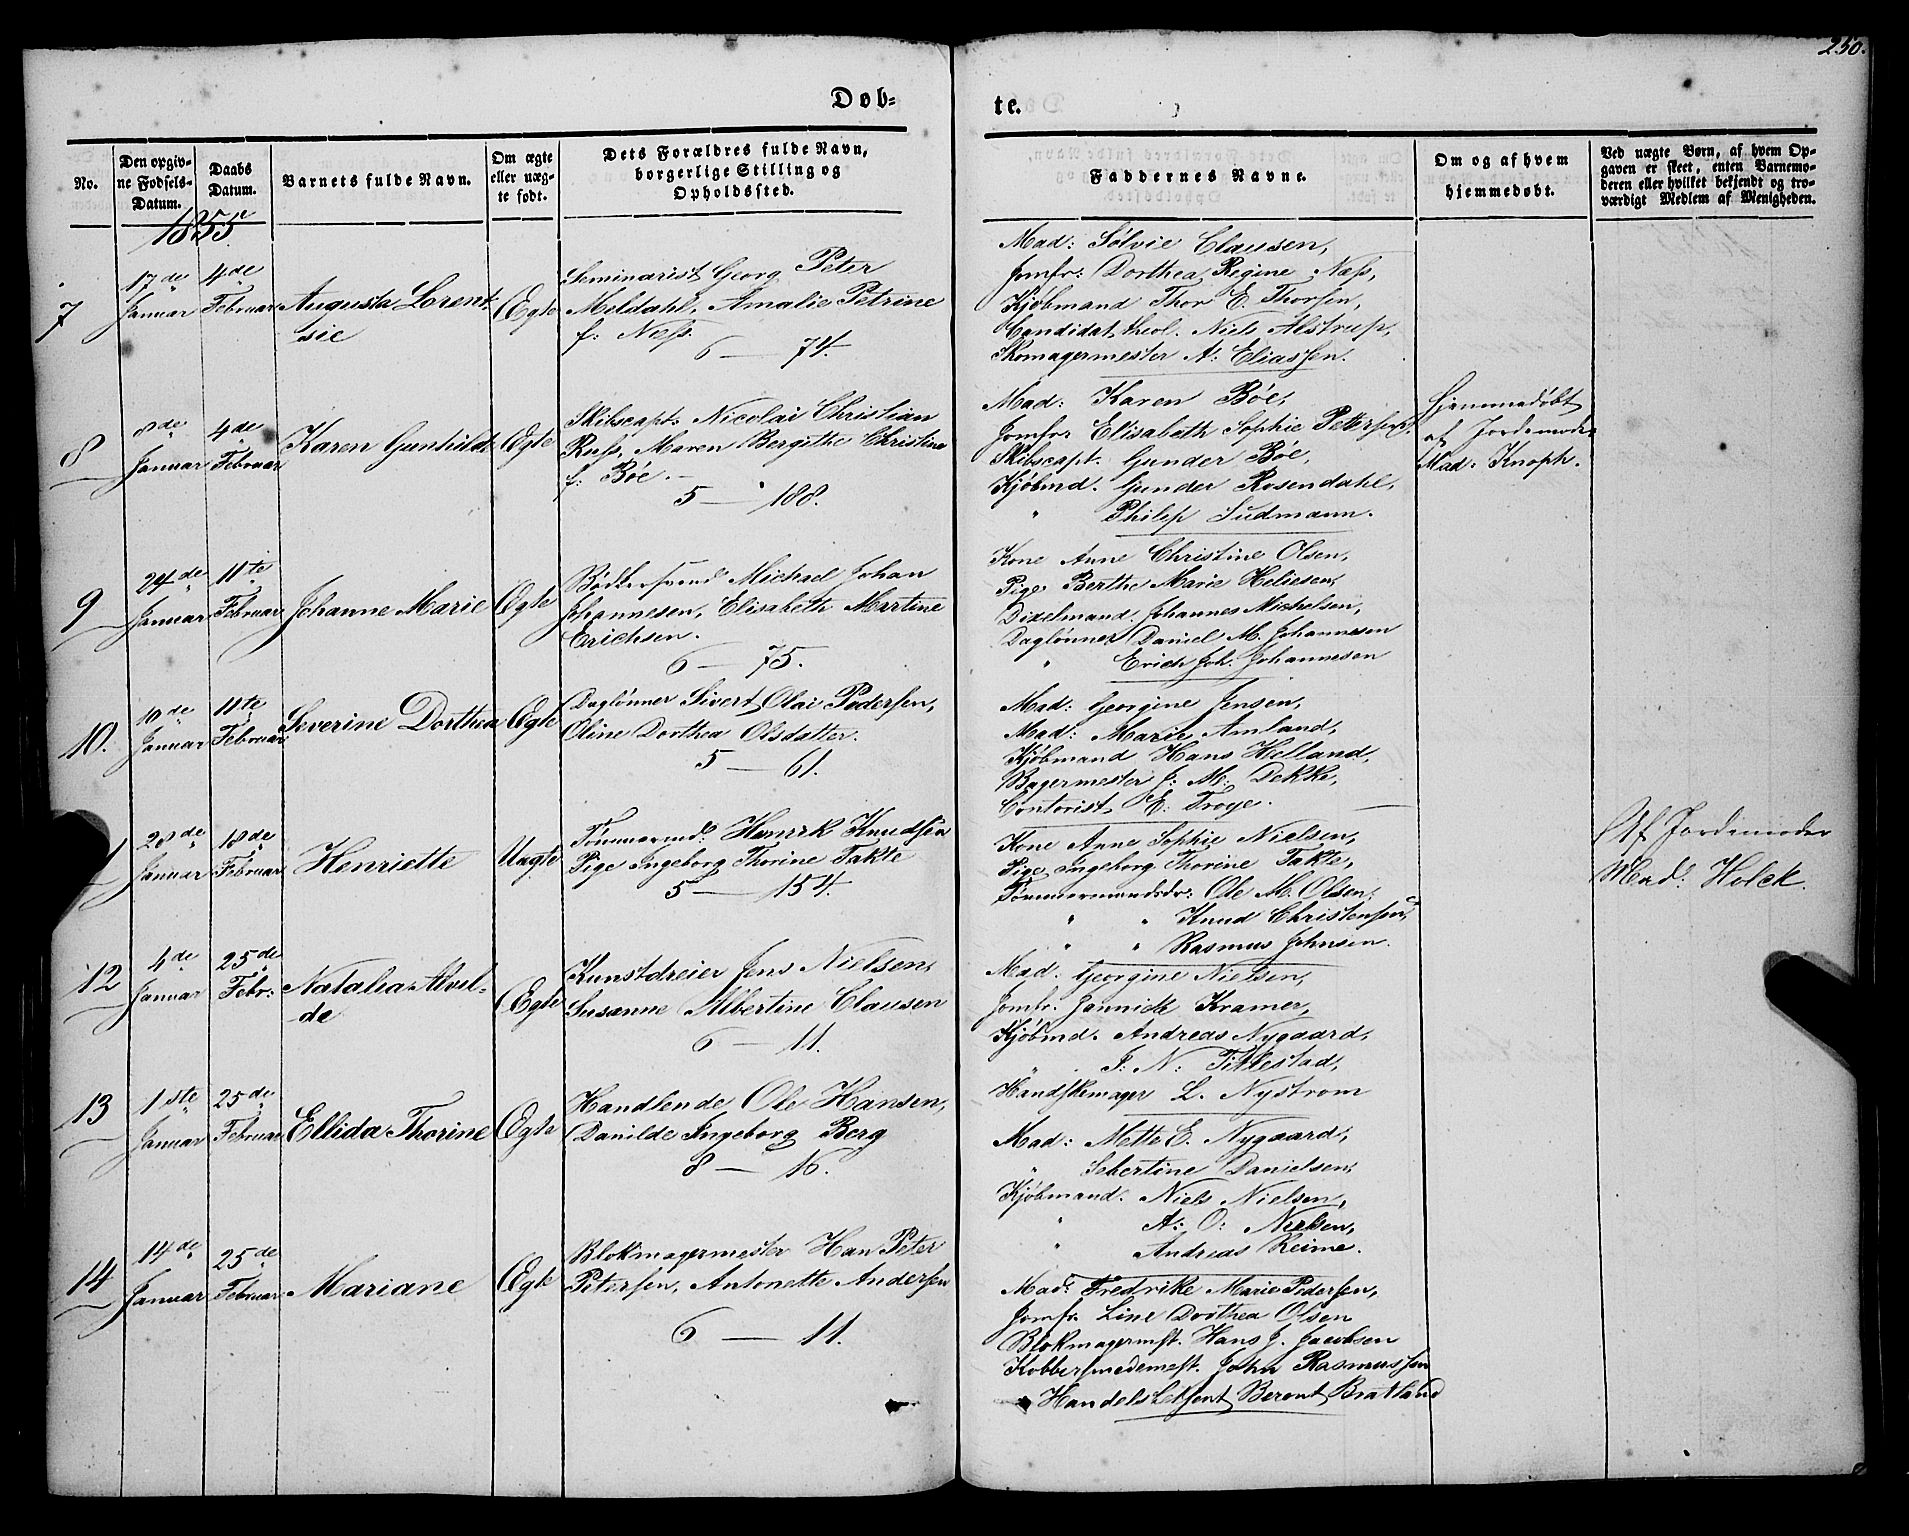 250.
Døb=
te.
No.
Den opgiv-
ne Fødsels-
Datum.
Daabs
Datum.
Barnets fulde Navn.
Om ægte
eller uæg-
te født.
Dets Forældres fulde Navn,
borgerlige Stilling og
Opholdssted.
Faddernes Navne.
Om og af hvem
hjemmedøbt.
Ved uægte Børn, af hvem Op-
gaven er skeet, enten Barnemo-
deren eller hvilket bekjendt og tro-
værdigt Medlem af Menigheden.
1855
7
17de
Januar
4de
Februar
Augusta Lorent-
sie
Ægte
Seminarist Georg Peter
Meldahl, Amalie Petrine
f: Næss.
6 — 74.
Mad: Sølvie Clausen,
Jomfr: Dorthea Regine Næss,
Kjøbmand Thor E. Thorsen,
Candidat, theol. Niels Alstrup,
Skomagermester A: Eliassen.
8
8de
Januar
4de
Februar
Karen Gunhilde
Ægte
Skibscapt: Nicolai Christian
Russ, Maren Bergithe Christine
f: Bøe.
5 — 188.
Mad: Karen Bøe,
Jomfr: Elisabeth Sophie Petersen.
Skibscapt. Gunder Bøe,
Kjøbmd. Gunder Rosendahl,
" Philip Sudmann.
Hjemmedøbt
af Jordemoder
Mad: Knoph.
9
24de
Januar
11te
Februar
Johanne Marie
Ægte
Bødkersvend Michael Johan
Johannesen, Elisabeth Martine
Erichsen.
6 — 75.
Kone Anne Christine Olsen,
Pige Berthe Marie Heliesen,
Dixelmand Johannes Michelsen,
Daglønner Daniel M. Johannesen
" Erich Joh. Johannesen
10.
10de
Januar
11te
Februar
Severine Dorthea
Ægte
Daglønner Sivert Olai Pedersen,
Oline Dorthea Olsdatter.
5 — 61.
Mad: Georgine Jensen,
Mad: Marie Amland,
Kjøbmand Hans Helland,
Bagermester J: M: Dekke,
Contorist E. Troye.
1
28de
Januar
18de
Februar
Henriette
Uægte
Tømmermd: Henrik Knudsen
Pige Ingeborg Thorine Takte
5 — 154.
Kone Anne Sophie Nielsen,
Pige Ingeborg Thorine Takte,
Tømmermandsdr: Ole M. Olsen,
" " Knud Christensen,
" " Rasmus Johnsen.
Af Jordemoder
Mad: Holck.
12
4de
Januar
25de
Febr:
Natalia Alvil-
de
Ægte
Kunstdreier Jens Nielsen,
Susanne Albertine Clausen
6 — 11.
Mad. Georgine Nielsen,
Jomfr. Jannicke Kramer,
Kjøbmd. Andreas Nygaard,
" T: N: Tillestad,
Handskemager L. Nystrom
13
1ste
Januar
25de
Februar
Ellida Thorine
Ægte
Handlende Ole Hansen,
Danilde Ingeborg Berg
8 — 16.
Mad: Mette E. Nygaard,
" Sebertine Danielsen,
Kjøbmand. Niels Nielsen,
" A: O: Nielsen,
" Andreas Reime.
14
14de
Januar
25de
Februar
Mariane
Ægte
Blokmagermester Han Peter
Petersen, Antonette Andersen
6 — 11.
Mad: Fredrike Marie Pedersen,
Jomfr. Line Dorthea Olsen
Blokmagermst. Hans J. Jacobsen
Kobbersmedemest. John Rasmussen
Handelsbetjent Berent Bratland